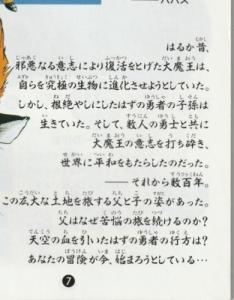 はるか昔、
邪悪なる意志により復活をとげた大魔王は、
自らを究極の生物に進化させようとしていた。
しかし、根絶やしにしたはずの勇者の子孫は
生きていた。そして、数人の勇士と共に
大魔王の意志を打ち砕き、
世界に平和をもたらしたのだった。
――それから数百年。
この広大な土地を旅する父と子の姿があった。
父はなぜ苦悩の旅を続けるのか?
天空の血を引いたはずの勇者の行方は?
あなたの冒険が今、始まろうとしている…
7